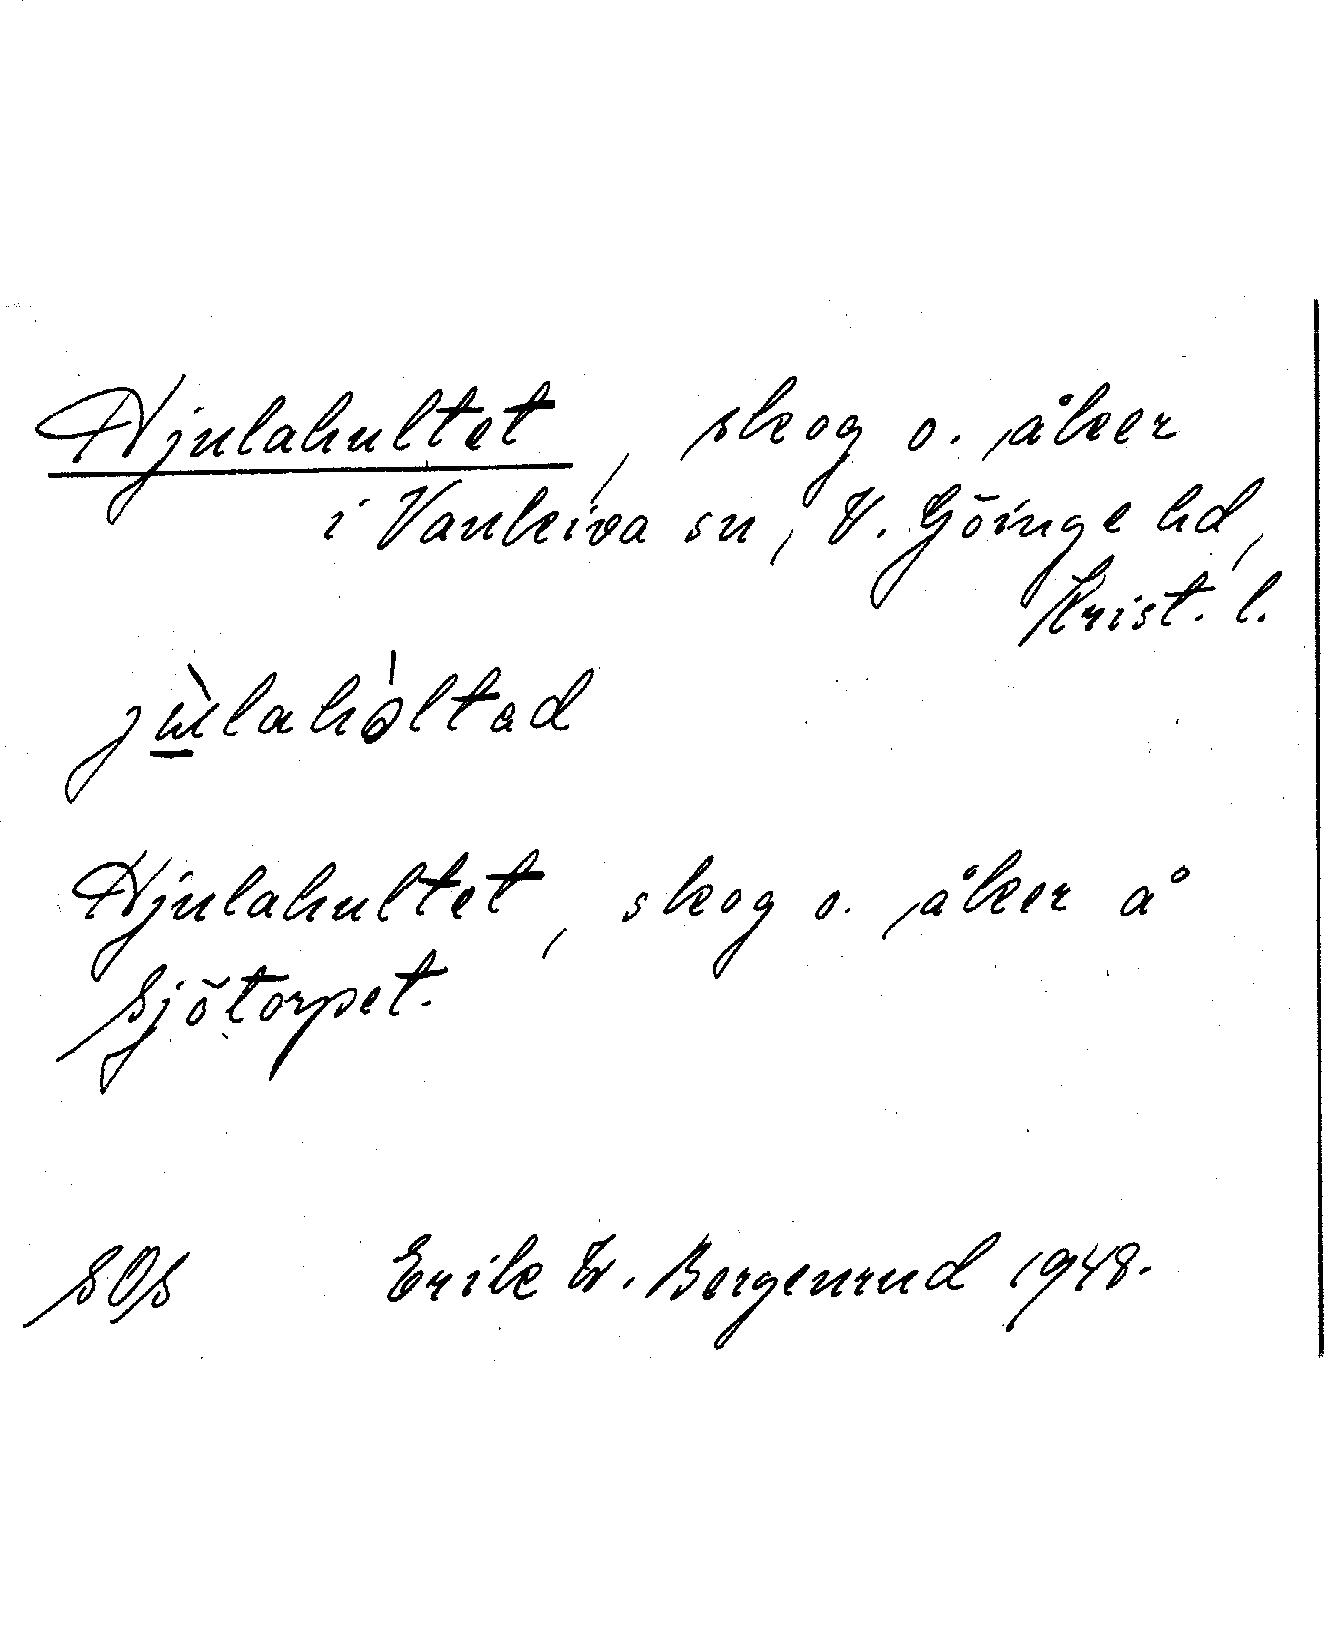 Hjulahultet, skog o. åker
i Vankiva sn, V. Göinge hd,
Krist. l.
jùlahòltad
Hjulahultet, skog o. åker å
Sjötorpet.
SOS Erik W. Bergenrud 1948.